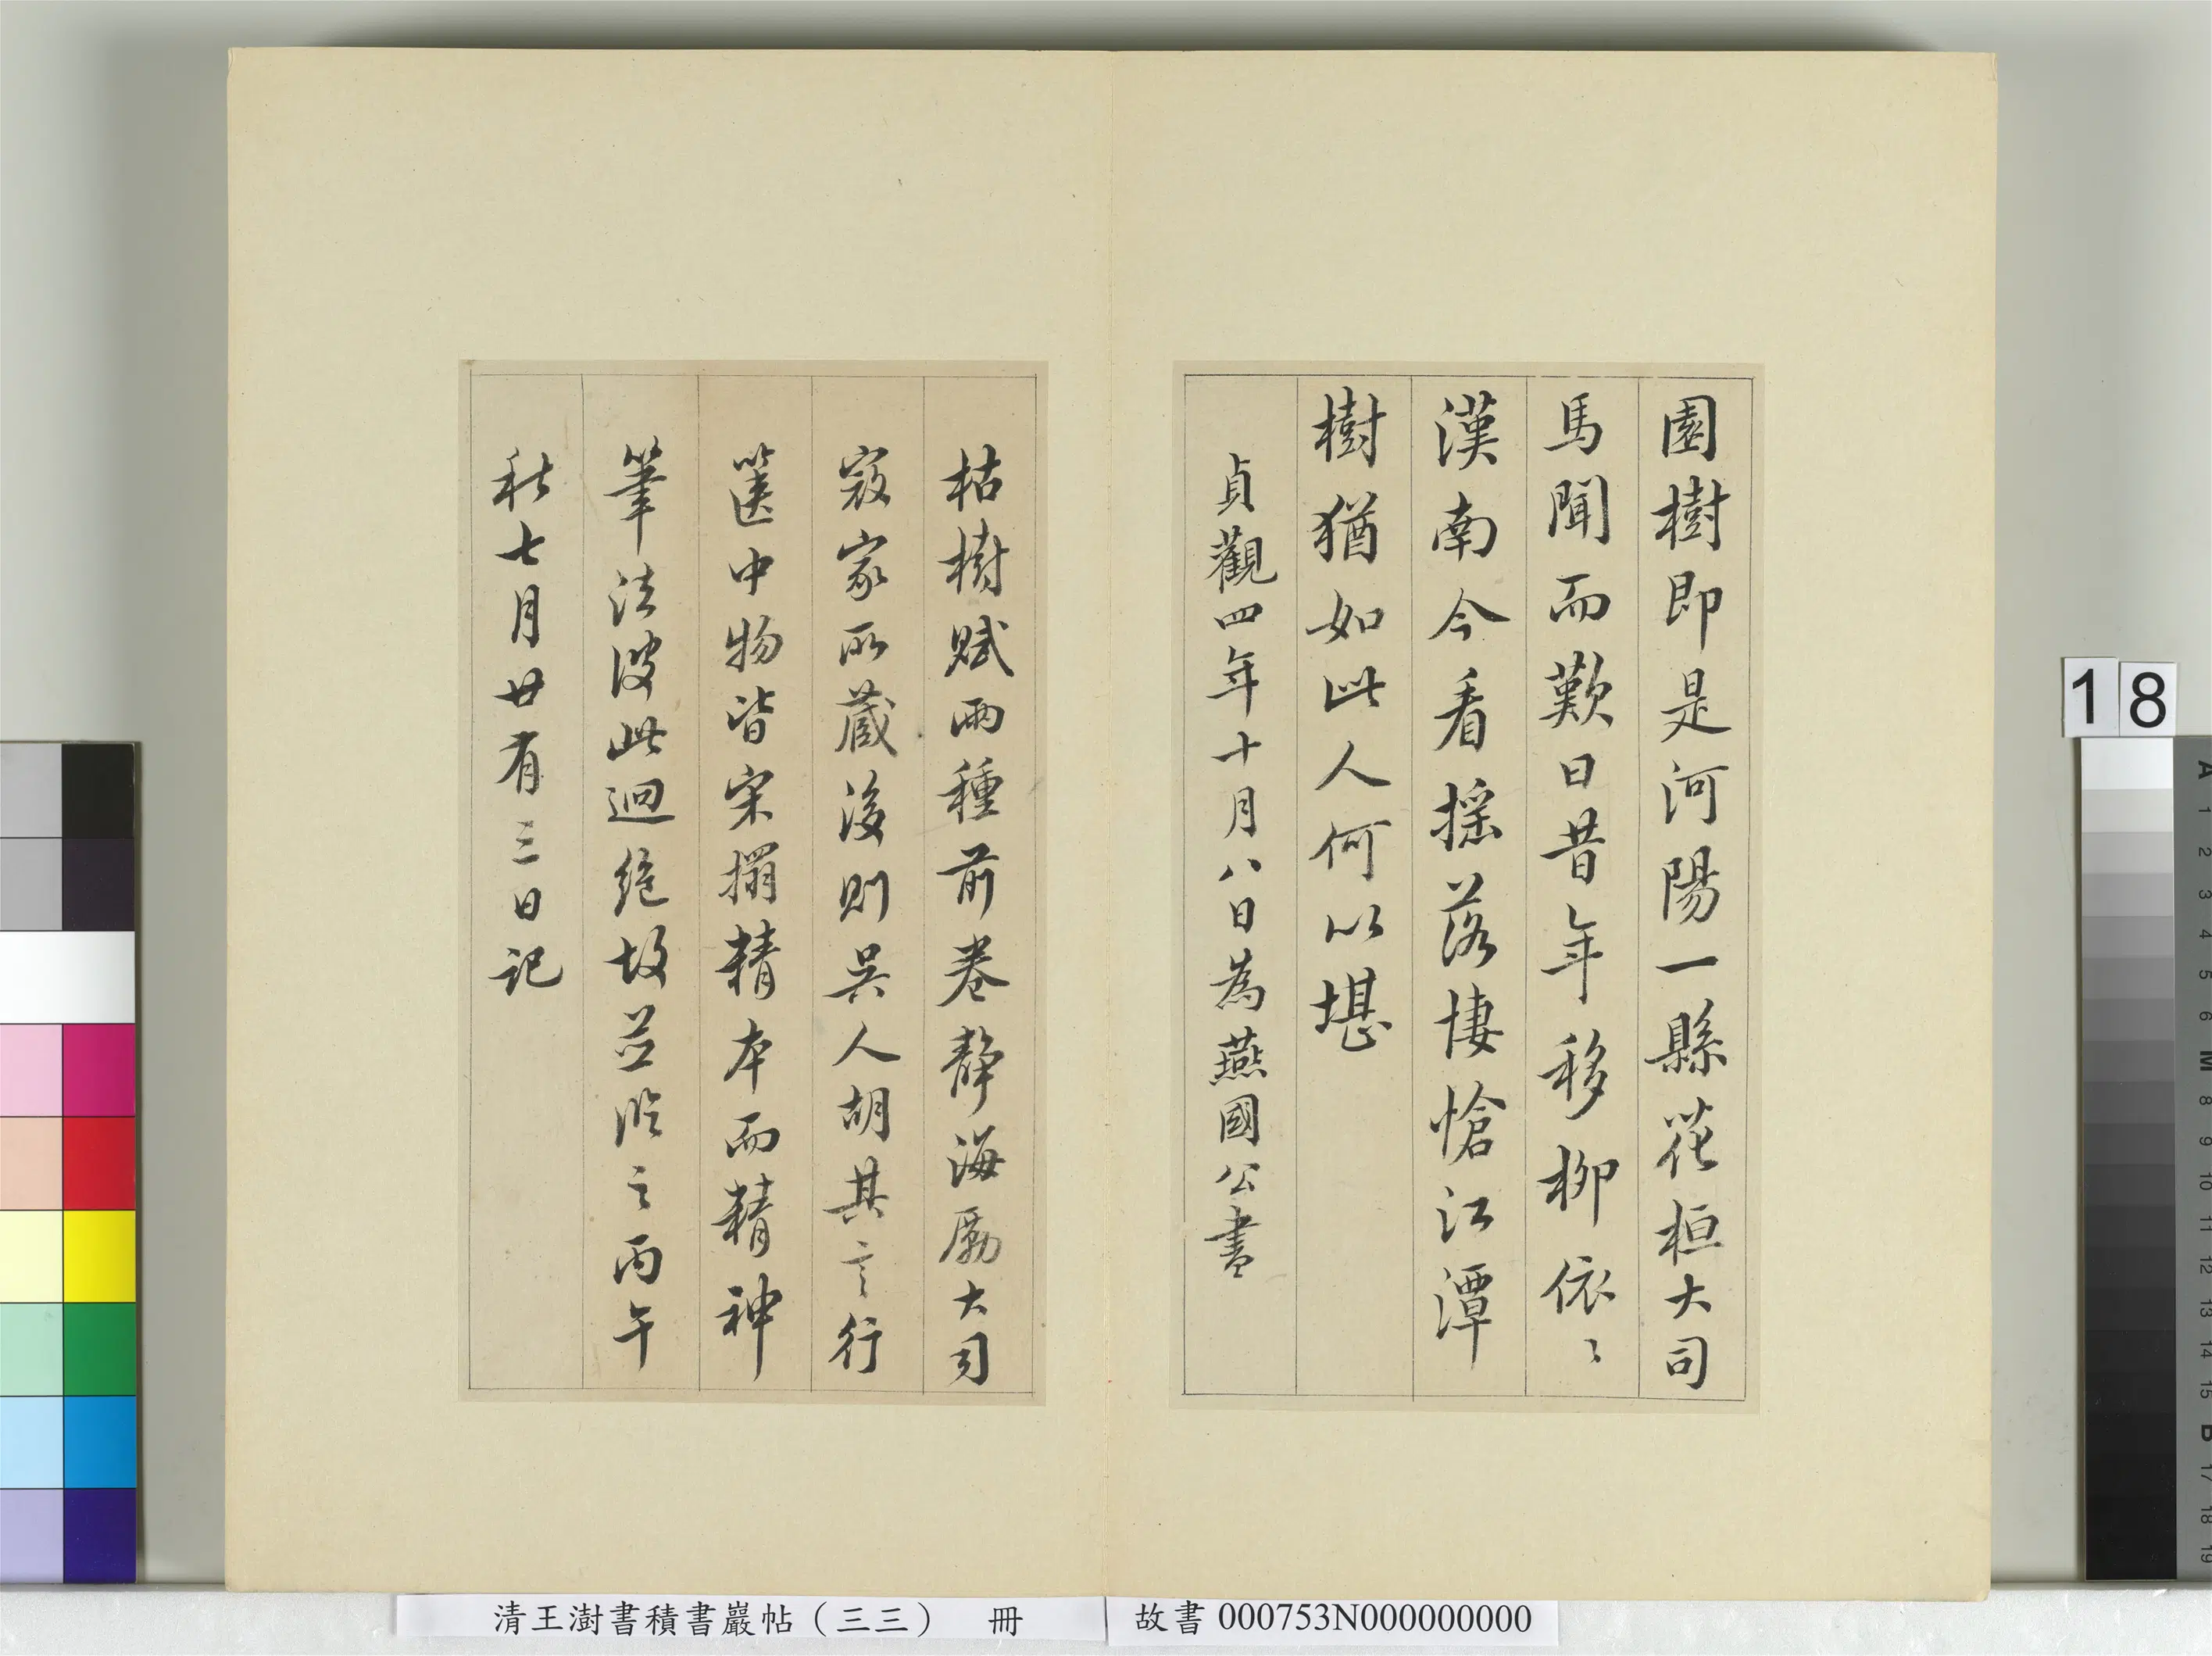 園樹即是河陽一縣花桓大司
馬聞而歎曰昔年移柳依〻
漢南今看搖落悽愴江潭
樹猶如此人何以堪
貞觀四年十月八日為燕國公書
枯樹賦兩種前卷靜海勵大司
寇家所藏後則吳人胡其言行
篋中物皆宋搨精本而精神
筆法彼此迥絕故並臨之丙午
秋七月廿有三日記
18
A
1
2
3
4
5
6
M
8
9
10
11
12
13
14
15
B
17
18
19
清王澍書積書巖帖（三三） 冊
故書 000753N000000000